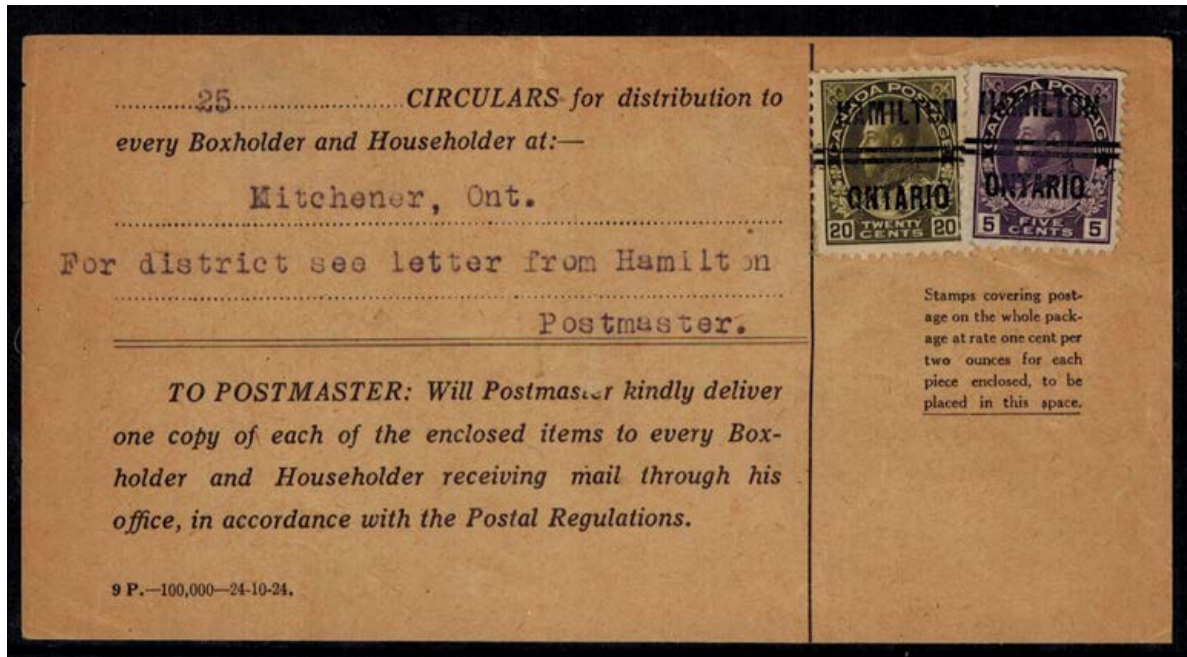 25 CIRCULARS for distribution to
every Boxholder and Householder at:—
Kitchener, Ont.
For district see letter from Hamilton
Postmaster.
TO POSTMASTER: Will Postmaster kindly deliver
one copy of each of the enclosed items to every Box-
holder and Householder receiving mail through his
office, in accordance with the Postal Regulations.
9 P.—100,000—24-10-24.
CANADA POSTAGE
HAMILTON
ONTARIO
20 TWENTY CENTS 20
CANADA POSTAGE
HAMILTON
ONTARIO
5 FIVE CENTS 5
Stamps covering post-
age on the whole pack-
age at rate one cent per
two ounces for each
piece enclosed, to be
placed in this space.